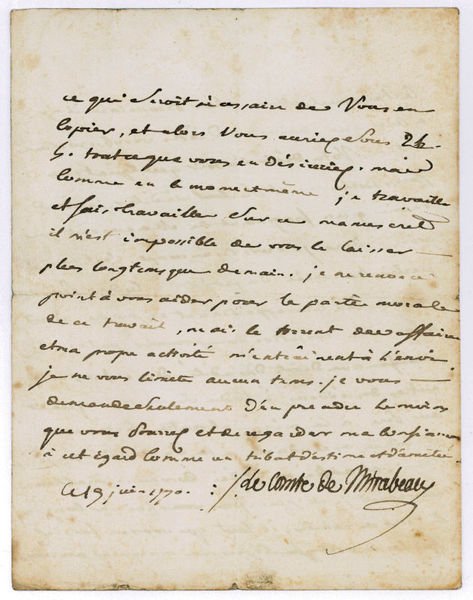 ce qui seroit nécessaire de Vous en
copier, et alors Vous auriez sous 24
h. tout ce que vous en désiriez. mais
comme en ce moment même je travaille
et fais travailler sur ce manuscrit
il m'est impossible de vous le laisser
plus longtems que demain. je ne renonce
point à vous aider pour la partie morale
de ce travail, mais le torrent des affaires
et ma propre activité m'entraînent à l'envi
je ne vous limite aucun tems. je vous
demande seulement d'en prendre le moins
que vous pourrez et de regarder ma confiance
à cet égard comme un tribut d'estime et d'amitié
Ce 19 juin 1790. :/. le Comte de Mirabeau